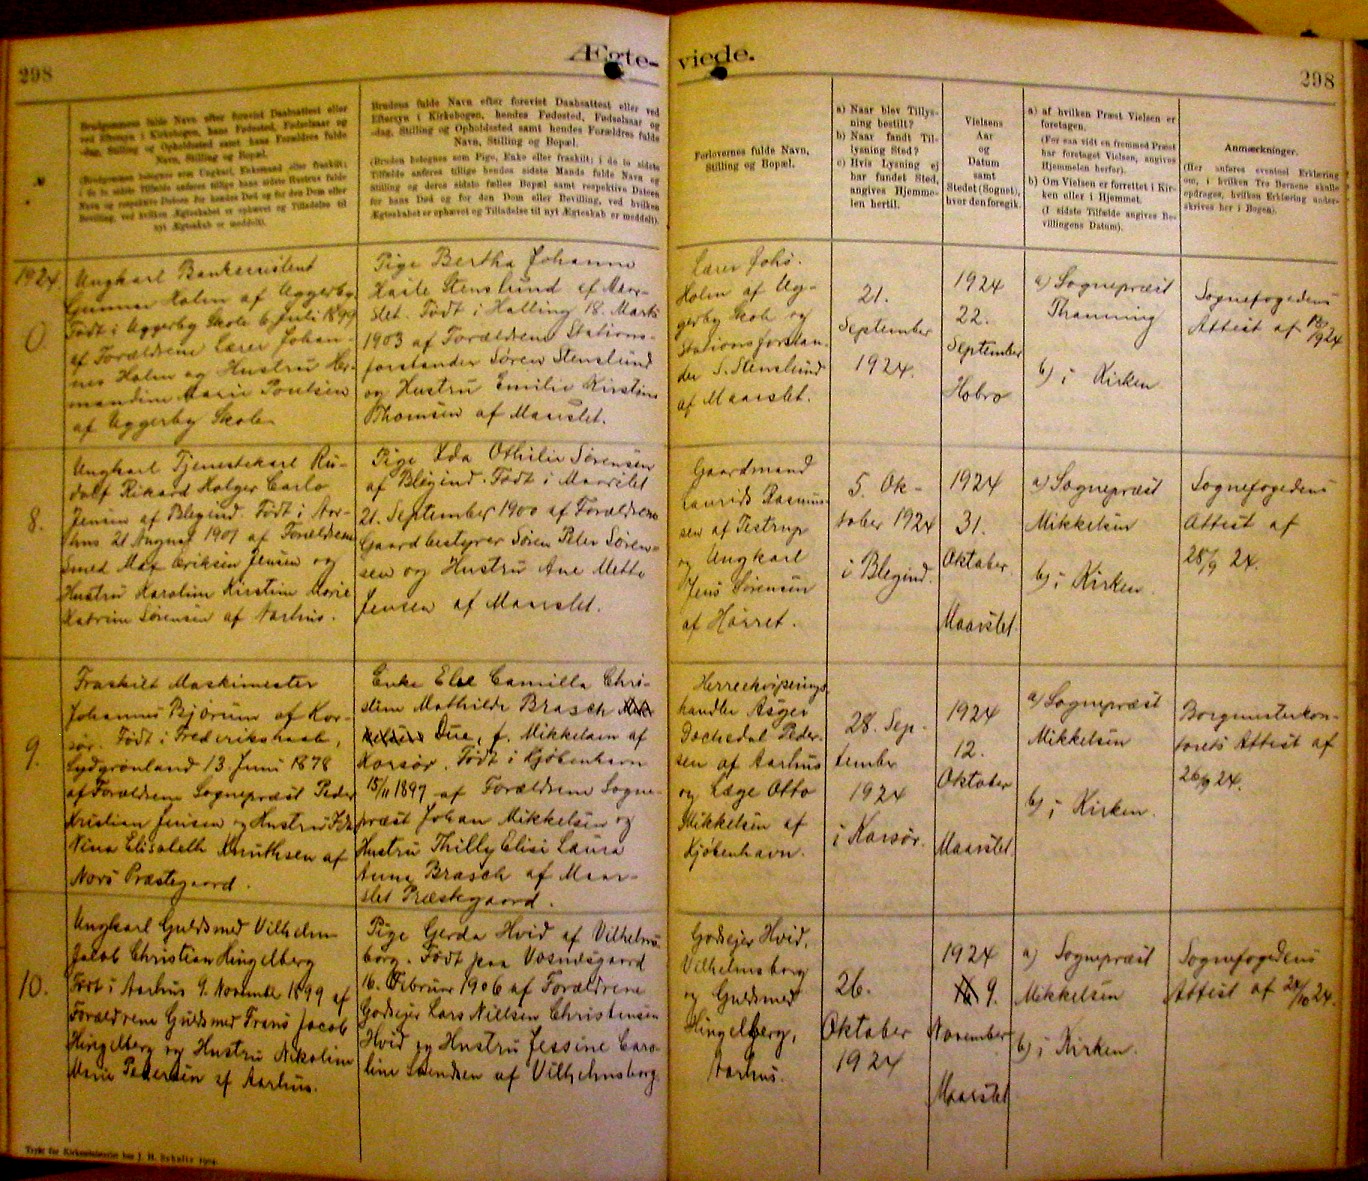 298
Ægte-
viede.
298
Brudgommens fulde Navn efter forevist Daabsattest eller
ved Eftersyn i Kirkebogen, hans Fødested, Fødselsaar og
-dag, Stilling og Opholdssted samt hans Forældres fulde
Navn, Stilling og Bopæl.
(Brudgommen betegnes som Ungkarl, Enkemand eller fraskilt;
i de to sidste Tilfælde anføres tillige hans sidste Hustrus fulde
Navn og respektive Datoen for hendes Død og for den Dom eller
Bevilling, ved hvilken Ægteskabet er ophævet og Tilladelse til
nyt Ægteskab er meddelt).
Brudens fulde Navn efter forevist Daabsattest eller ved
Eftersyn i Kirkebogen, hendes Fødested, Fødselsaar og
-dag, Stilling og Opholdssted samt hendes Forældres fulde
Navn, Stilling og Bopæl.
(Bruden betegnes som Pige, Enke eller fraskilt; i de to sidste
Tilfælde anføres tillige hendes sidste Mands fulde Navn og
Stilling og deres sidste fælles Bopæl samt respektive Datoen
for hans Død og for den Dom eller Bevilling, ved hvilken
Ægteskabet er ophævet og Tilladelse til nyt Ægteskab er meddelt).
Forlovernes fulde Navn,
Stilling og Bopæl.
a) Naar blev Tillys-
ning bestilt?
b) Naar fandt Til-
lysning Sted?
c) Hvis Lysning ej
har fundet Sted,
angives Hjemme-
len hertil.
Vielsens
Aar
og
Datum
samt
Stedet (Sognet),
hvor den foregik.
a) af hvilken Præst Vielsen er
foretagen.
(For saa vidt en fremmed Præst
har foretaget Vielsen, angives
Hjemmelen herfor).
b) Om Vielsen er forrettet i Kir-
ken eller i Hjemmet.
(I sidste Tilfælde angives Be-
villingens Datum).
Anmærkninger.
(Her anføres eventuel Erklæring
om, i hvilken Tro Børnene skulle
opdrages, hvilken Erklæring under-
skrives her i Bogen).
1924.
0.
Ungkarl Bankassistent
Gunnar Holm af Uggerby.
Født i Uggerby Skole 6 Juli 1899
af Forældrene Lærer Johan-
nes Holm og Hustru Her-
mandine Marie Poulsen
af Uggerby Skole
Pige Bertha Johanne
Stenslund af Maar-
slet. Født i Halling 18. Marts
1903 af Forældrene Stations-
forstander Søren Stenslund
og Hustru Emilie Kirstine
Thomsen af Maarslet.
Lærer Johs.
Holm af Ug-
gerby Skole og
Stationsforstan-
der S. Stenslund
af Maarslet.
21.
September
1924.
1924
22.
September
Hobro
a) Sognepræst
Thanning
b) i Kirken
Sognefogedens
Attest af 1924
8.
Ungkarl Tjenestekarl Ru-
dolf Rikard Holger Carlo
Jensen af Blegind. Født i Aar-
hus 21 August 1901 af Forældrene
Smed Max Eriksen Jensen og
Hustru Karoline Kirstine Marie
Katrine Sørensen af Aarhus.
Pige Ida Othilie Sørensen
af Blegind. Født i Maarslet
21. September 1900 af Forældrene
Gaardbestyrer Søren Peter Søren-
sen og Hustru Ane Mette
Jensen af Maarslet.
Gaardmand
Laurids Rasmus-
sen af Testrup
og Ungkarl
Jens Sørensen
af Hørret.
5. Ok-
tober 1924
i Blegind.
1924
31.
Oktober
Maarslet
a) Sognepræst
Mikkelsen
b) i Kirken.
Sognefogedens
Attest af
28/9 24.
9.
Fraskilt Maskinmester
Johannes Bjørum af Kor-
sør. Født i Frederikshaab,
Sydgrønland 13. Juni 1878
af Forældrene Sognepræst Peder
Kristian Jensen og Hustru Ida
Nina Elisabeth Knuthsen af
Nors Præstegaard.
Enke Else Camilla Chri-
stine Mathilde Brasch
Due, f. Mikkelsen af
Korsør. Født i Kjøbenhavn
15/11 1897 af Forældrene Sogne-
præst Johan Mikkelsen og
Hustru Thilly Elise Laura
Anna Brasch af Maar-
slet Præstegaard.
Herreekviperings
handler Asger
Dochedal Peder-
sen af Aarhus
og Læge Otto
Mikkelsen af
Kjøbenhavn.
28. Sep-
tember
1924
i Korsør.
1924
12.
Oktober
Maarslet
a) Sognepræst
Mikkelsen
b) i Kirken.
Borgmesterkon-
torets Attest af
26/9 24.
10.
Ungkarl Guldsmed Vilhelm
Jacob Christian Hingelberg
Født i Aarhus 9. November 1899 af
Forældrene Guldsmed Frans Jacob
Hingelberg og Hustru Nikoline
Marie Pedersen af Aarhus.
Pige Gerda Hvid af Vilhelms-
borg. Født paa Vosnæsgaard
16. Februar 1906 af Forældrene
Godsejer Lars Nielsen Christensen
Hvid og Hustru Jessine Caro-
line Svendsen af Vilhelmsborg.
Godsejer Hvid,
Vilhelmsborg
og Guldsmed
Hingelberg,
Aarhus.
26.
Oktober
1924
1924
9.
November
Maarslet
a) Sognepræst
Mikkelsen
b) i Kirken.
Sognefogedens
Attest af 24/10 24.
Trykt for Kirkeministeriet hos J. H. Schultz 1904.